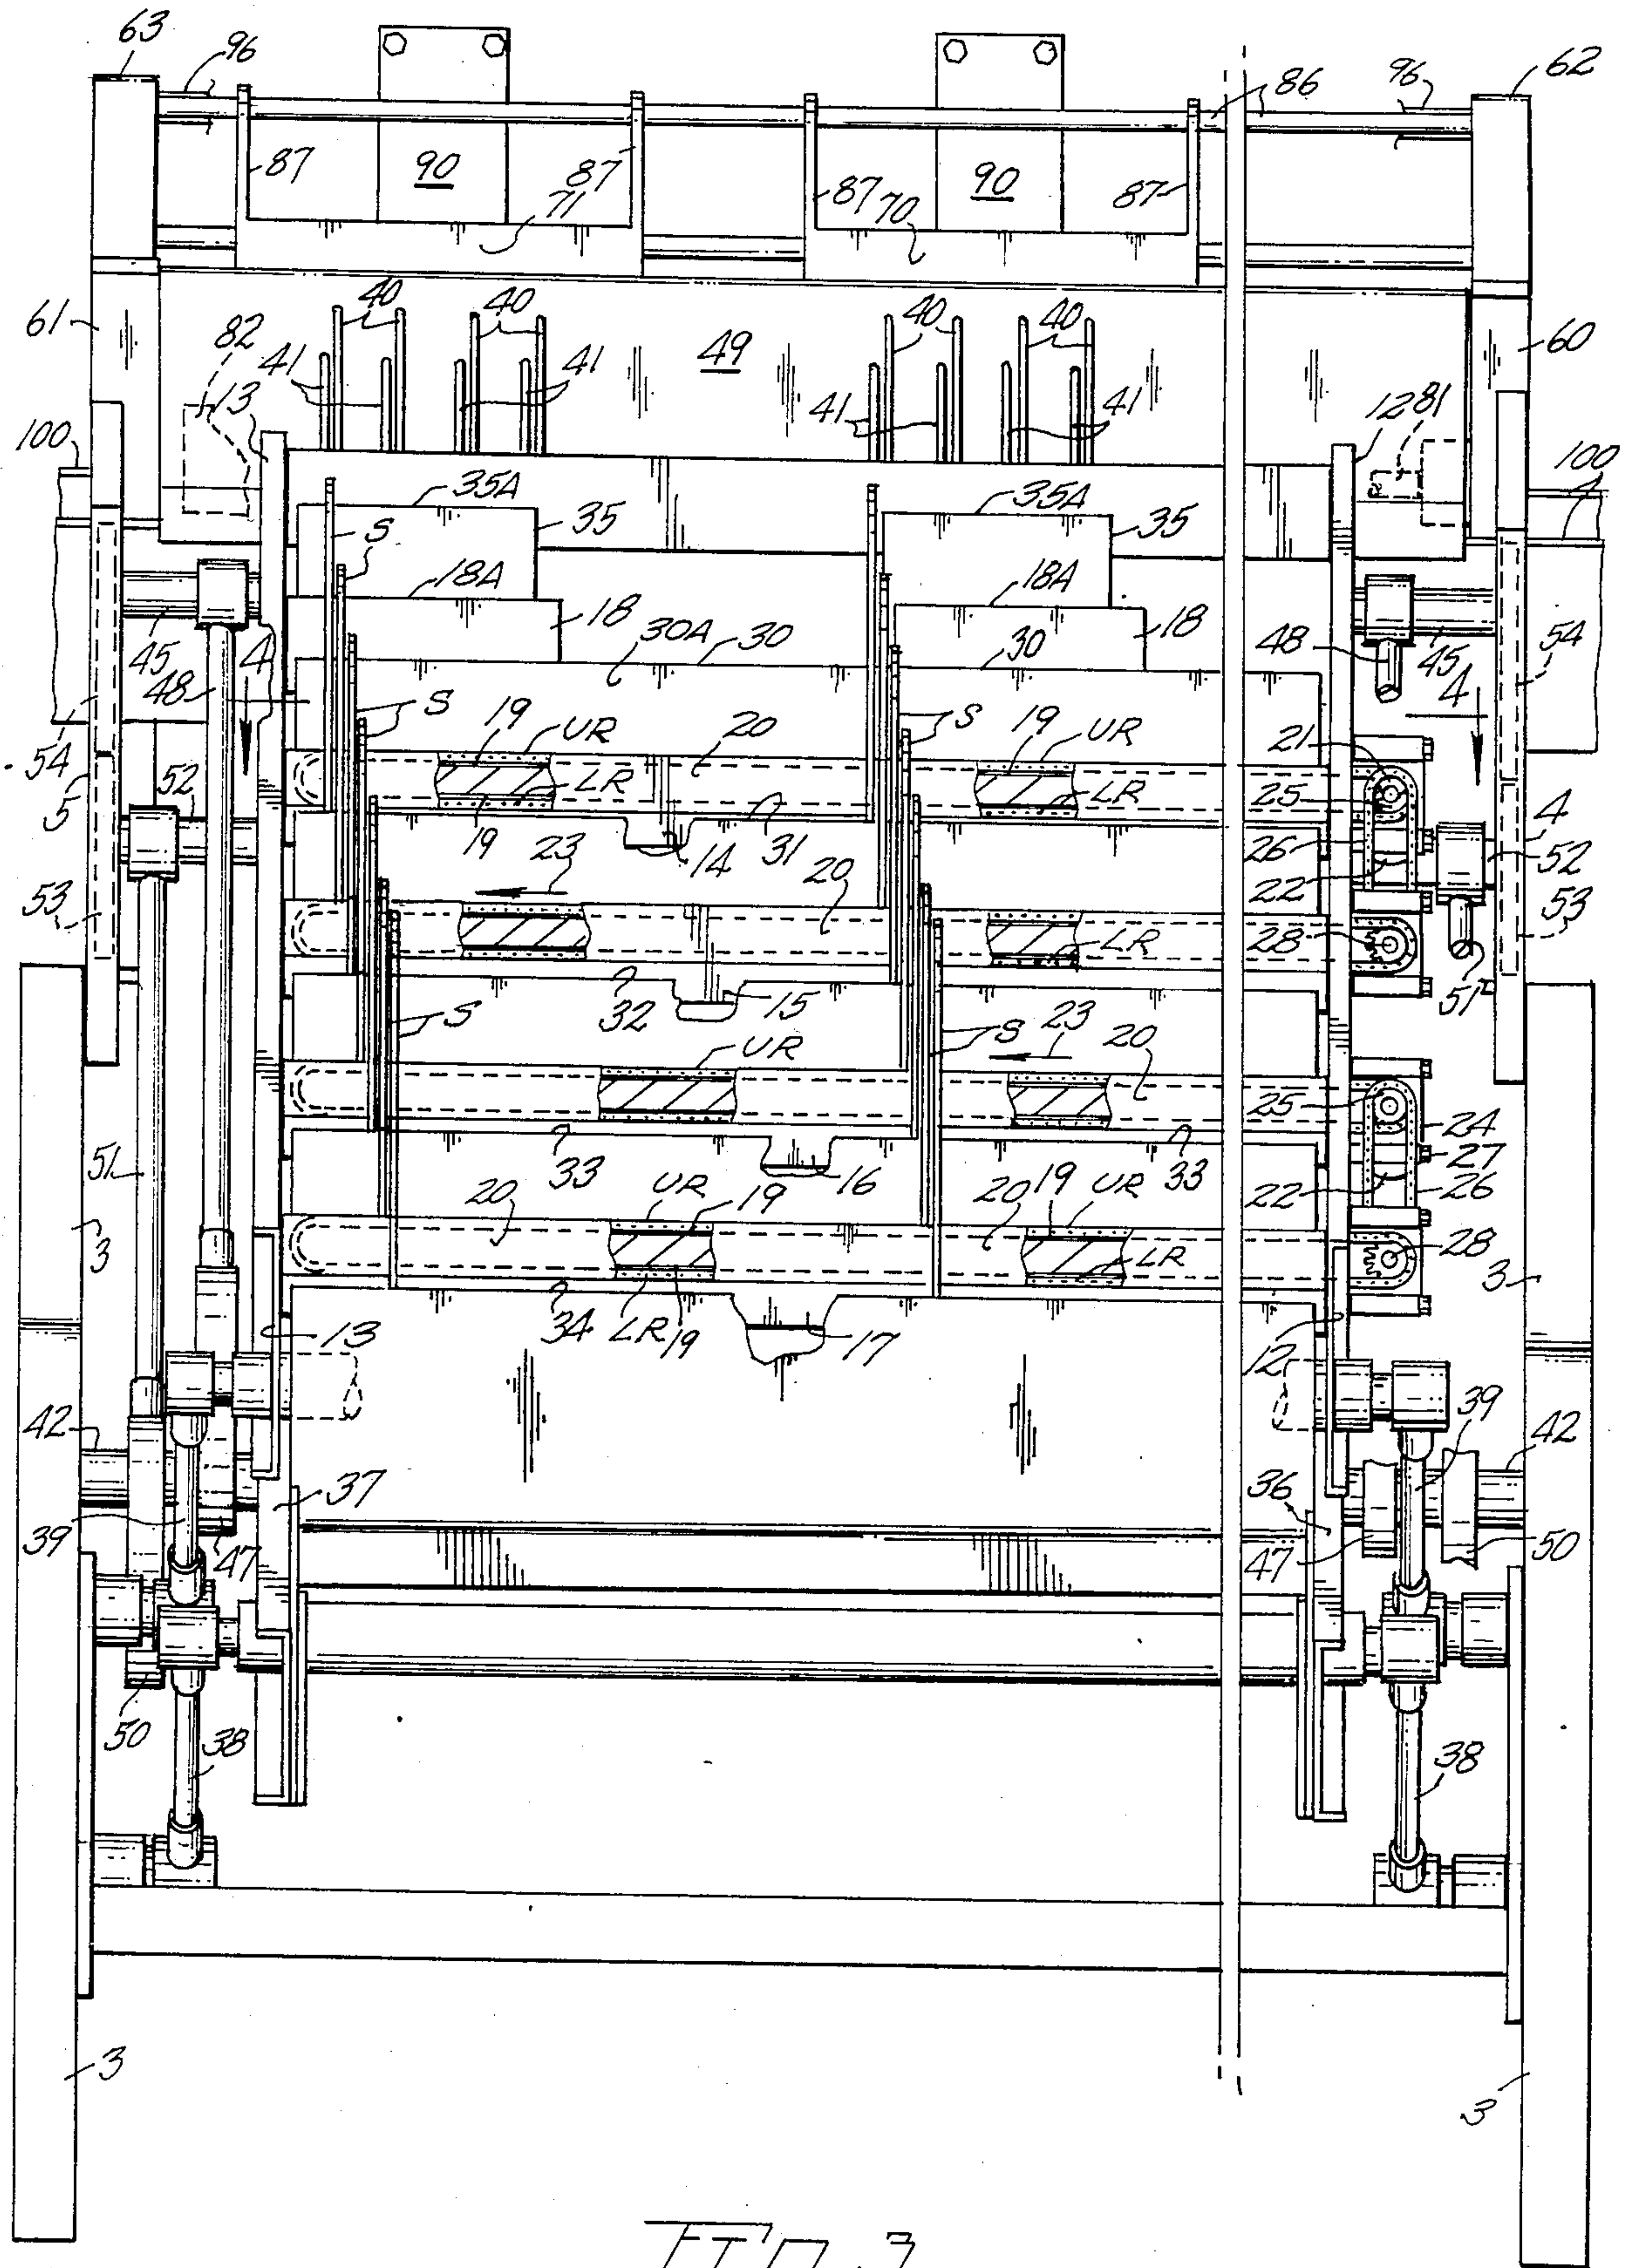 63 96 86 96 62
87 90 87 87 90 87
71 70
61 82 40 40 49 40 40 60
13 41 41 41 41 12 81
100 100
35A 35 35A 35
S
18A 18 18A 18
45 4 30A 30 30 48 45 54
48 S S 4
54 19 UR 20 19 UR 21
5 52 LR LR 25 4
19 14 31 26 52
23 20 22
53 LR 28 53
32 15 51
S S 23
UR 20 25 24
51 33 16 33 27
3 UR 19 20 19 UR 22 26
20 28
LR 3
34 LR 19 17
13 12
42 39 42
37 36
39 47 47 50
50 38 38
3 3
FIG. 3